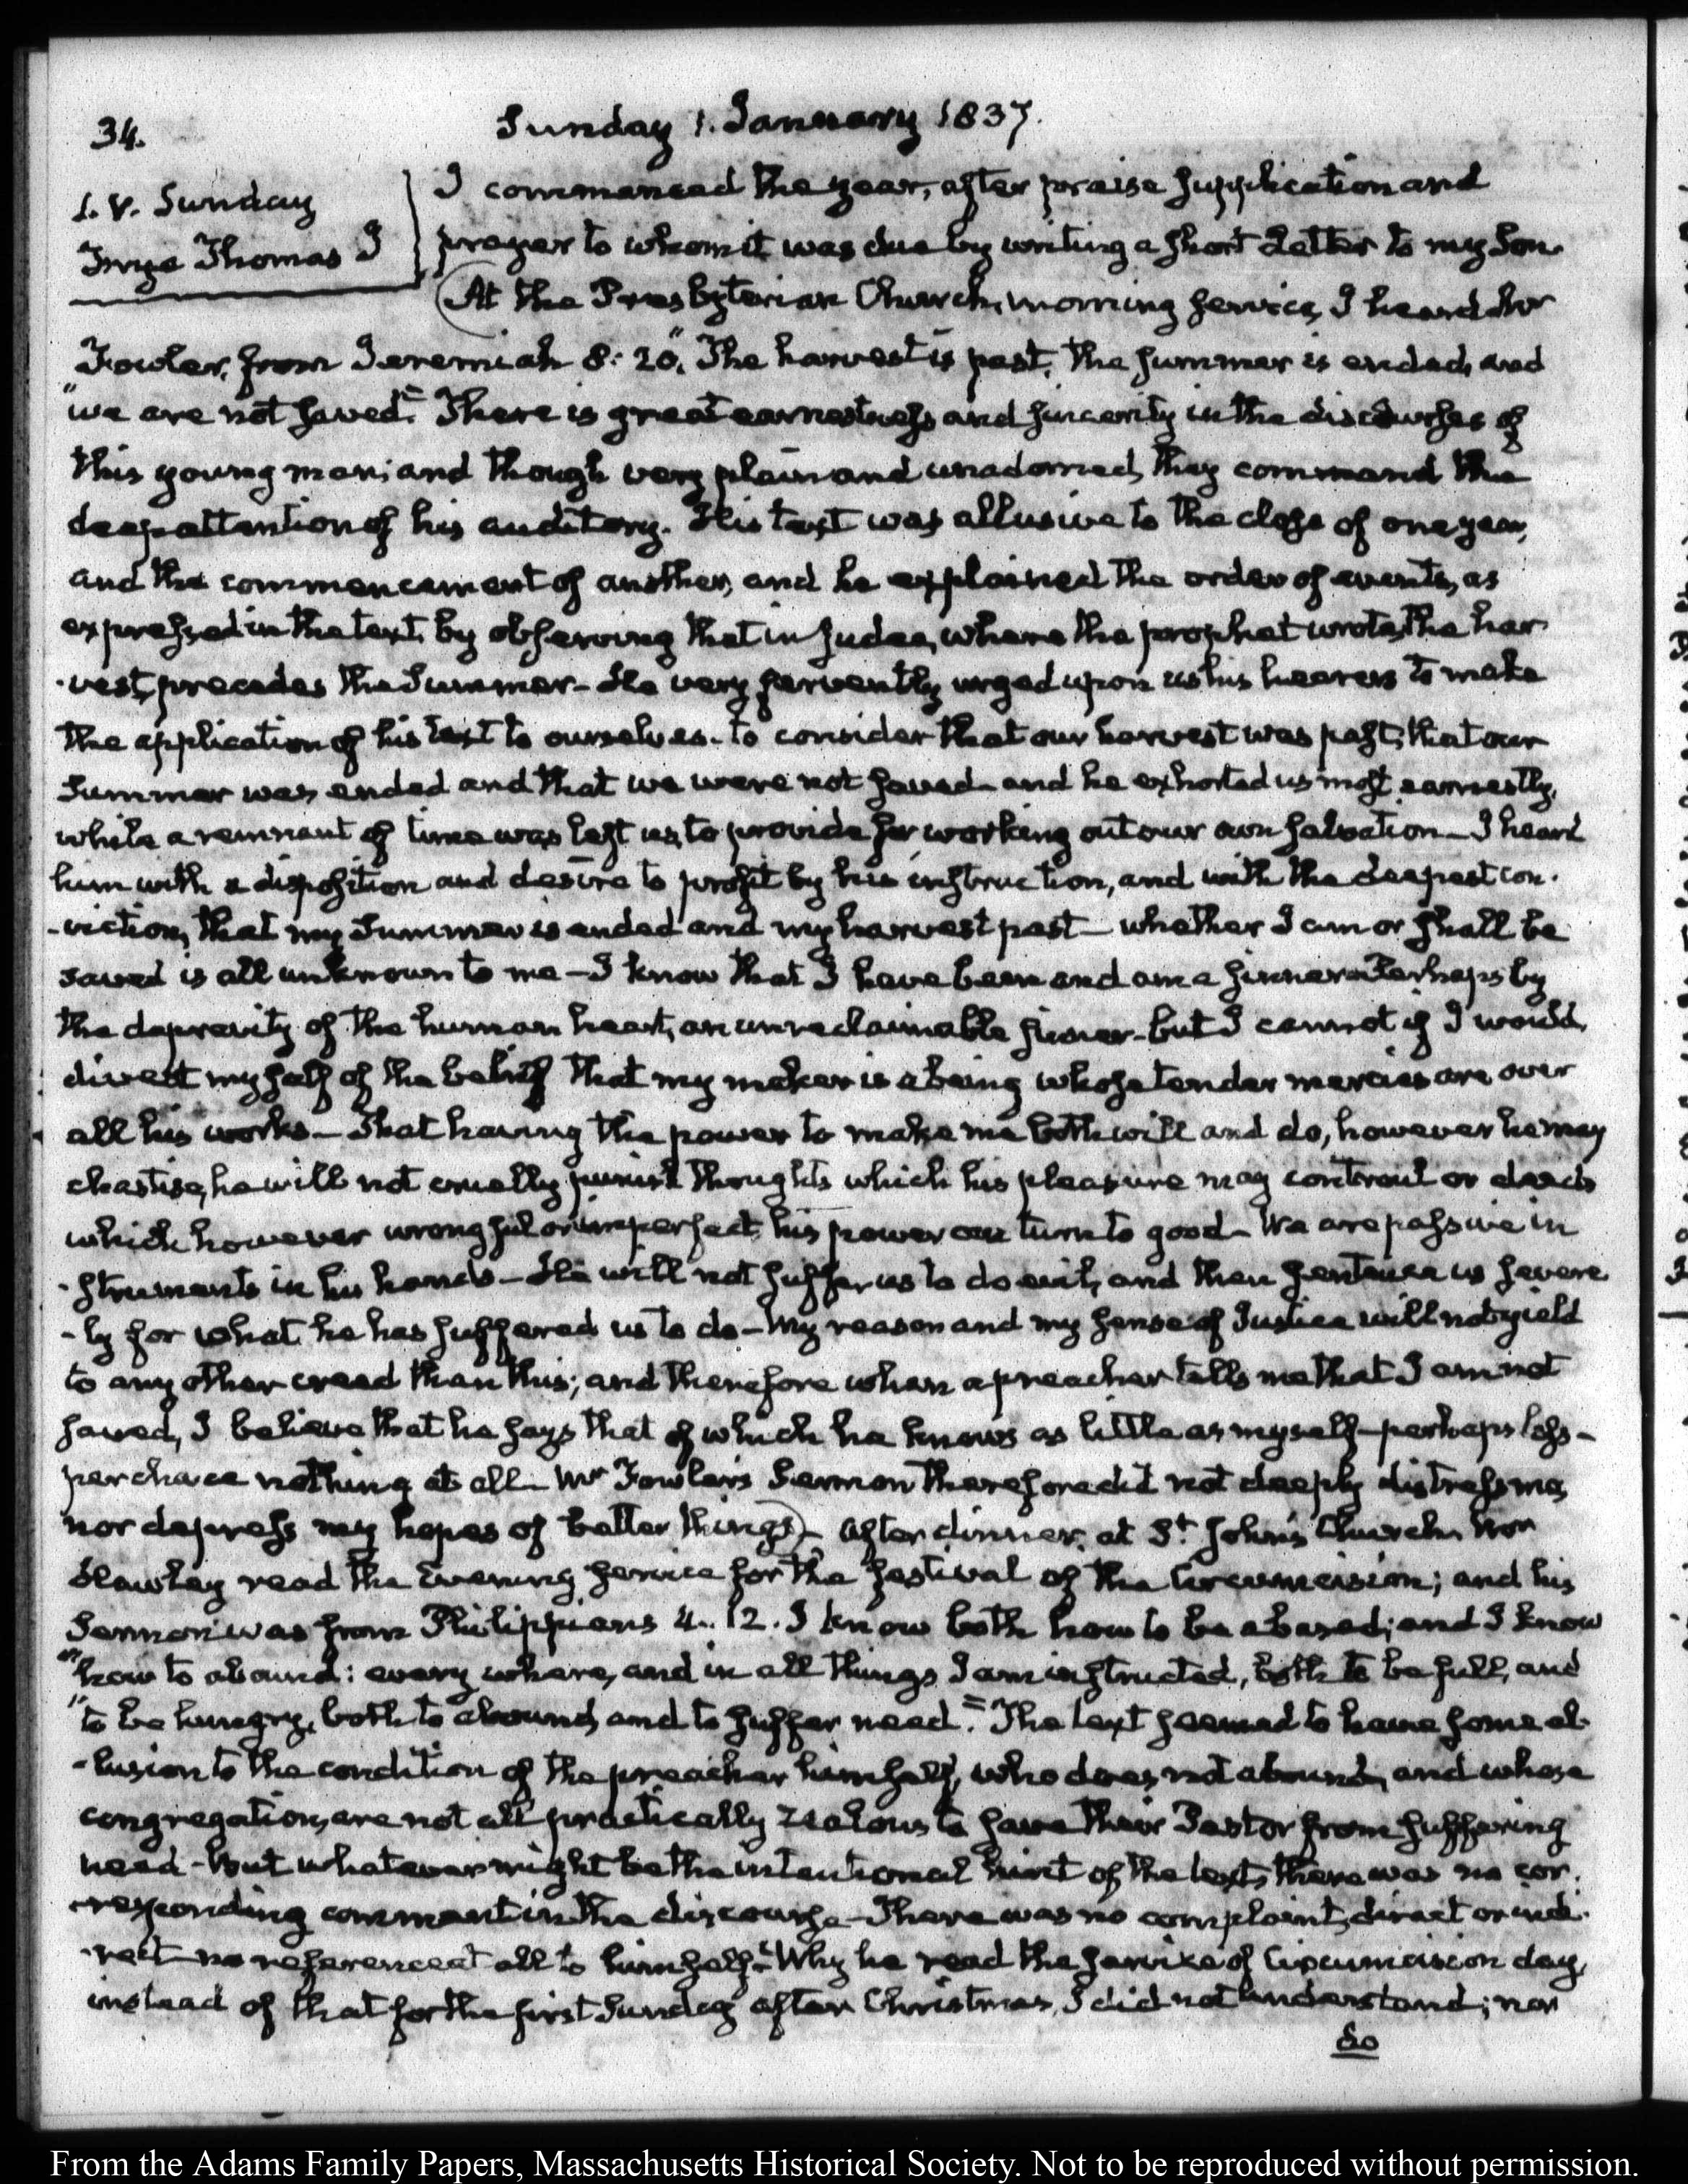 34.
Sunday 1. January 1837.
1. V. Sunday
Frye Thomas I
I commenced the year, after praise supplication and
prayer to whom it was due by writing a short Letter to my Son.
At the Presbyterian Church, morning service, I heard Mr
Fowler, from Jeremiah 8: 20. "The harvest is past, the summer is ended, and
"we are not saved." There is great earnestness and sincerity in the discourses of
this young man; and though very plain and unadorned, they command the
deep attention of his auditory. His text was allusive to the close of one year,
and the commencement of another, and he explained the order of events, as
expressed in the text, by observing that in Judea, where the prophet wrote, the har
-vest, precedes the Summer- He very fervently urged upon us his hearers to make
the application of his text to ourselves- to consider that our harvest was past, that our
Summer was ended and that we were not saved- and he exhorted us most earnestly,
while a remnant of time was left us, to provide for working out our own salvation- I heard
him with a disposition and desire to profit by his instruction, and with the deepest con-
-viction, that my Summer is ended and my harvest past- whether I am or shall be
saved is all unknown to me- I know that I have been and am a sinner- Perhaps by
the depravity of the human heart, an unreclaimable sinner- but I cannot if I would,
divest myself of the belief that my maker is a being whose tender mercies are over
all his works- That having the power to make me both will and do, however he may
chastise, he will not cruelly punish thoughts which his pleasure may controul or deeds
which however wrongful or imperfect, his power can turn to good- We are passive in
-struments in his hands- He will not suffer us to do evil, and then sentence us severe
-ly for what he has suffered us to do- My reason and my sense of Justice will not yield
to any other creed than this; and therefore when a preacher tells me that I am not
saved, I believe that he says that of which he knows as little as myself- perhaps less-
perchance nothing at all- Mr Fowler's Sermon therefore did not deeply distress me,
nor depress my hopes of better things- After dinner, at St. John's Church, Mr
Hawley read the Evening service for the festival of the Circumcision; and his
Sermon was from Philippians 4. 12. I know both how to be abased; and I know
"how to abound: every where, and in all things I am instructed, both to be full, and
"to be hungry, both to abound, and to suffer need." The text seemed to have some al-
-lusion to the condition of the preacher himself, who does not abound, and whose
congregation, are not all practically zealous to save their Pastor from suffering
need- But whatever might be the intentional hint of the text, there was no cor-
-responding comment in the discourse- There was no complaint, direct or indi-
-rect- no reference at all to himself- Why he read the service of Circumcision day,
instead of that for the first Sunday after Christmas, I did not understand; nor
do
From the Adams Family Papers, Massachusetts Historical Society. Not to be reproduced without permission.